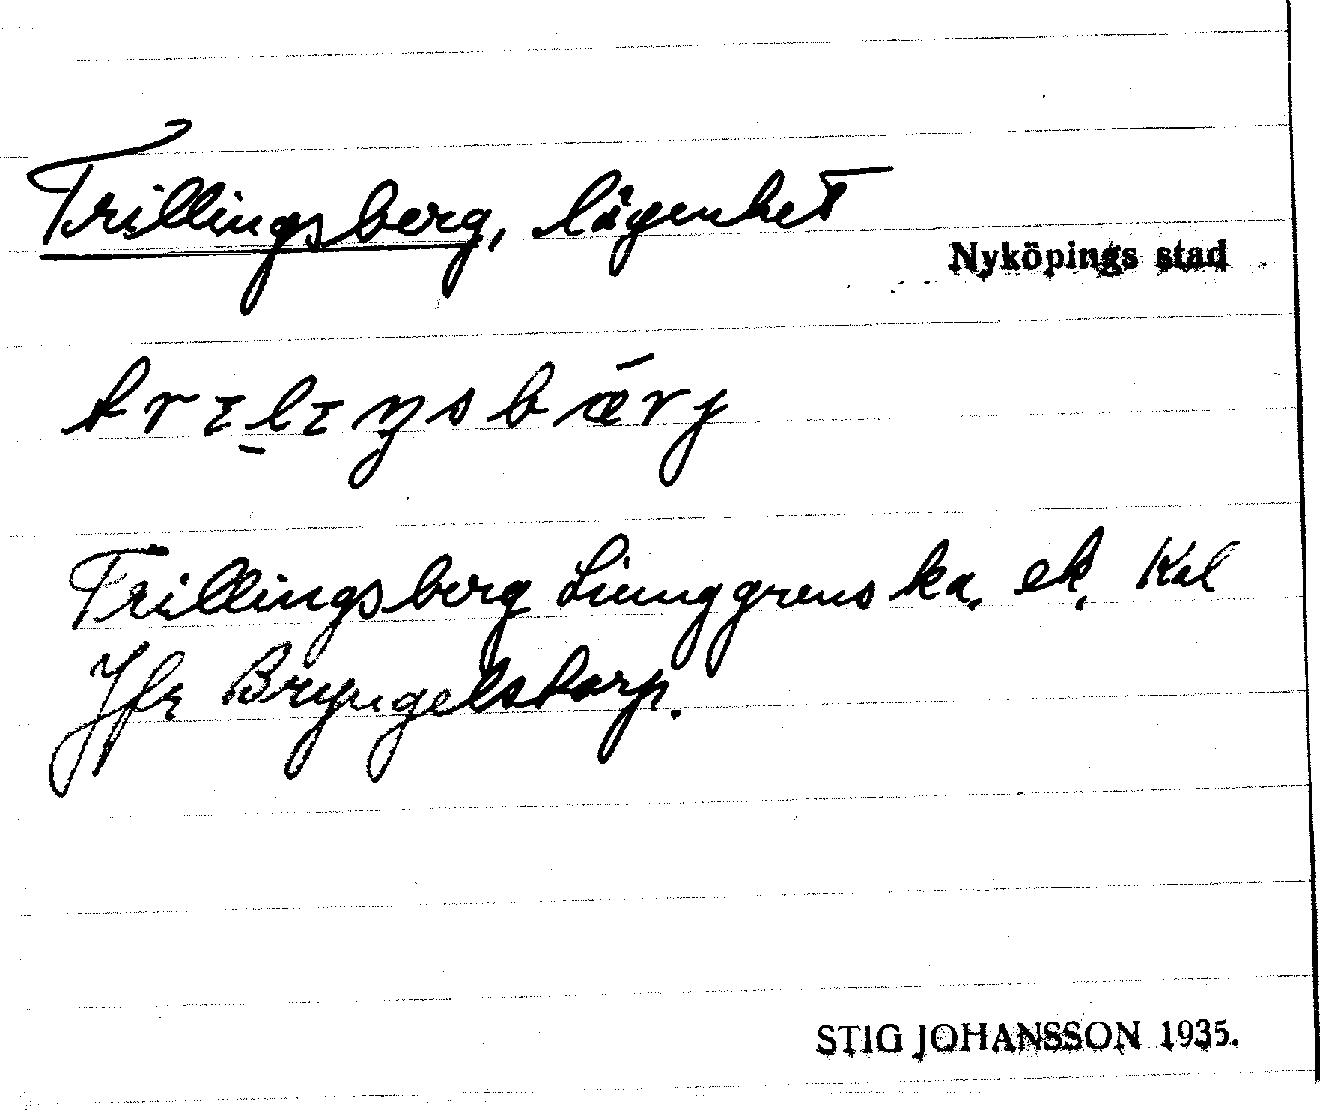 Trillingsberg, lägenhet
Nyköpings stad
trɪl̠ɪŋsbǽrj
Trillingsberg Liunggrenska, ek, Kal
Jfr Bryngelstorp.
STIG JOHANSSON 1935.